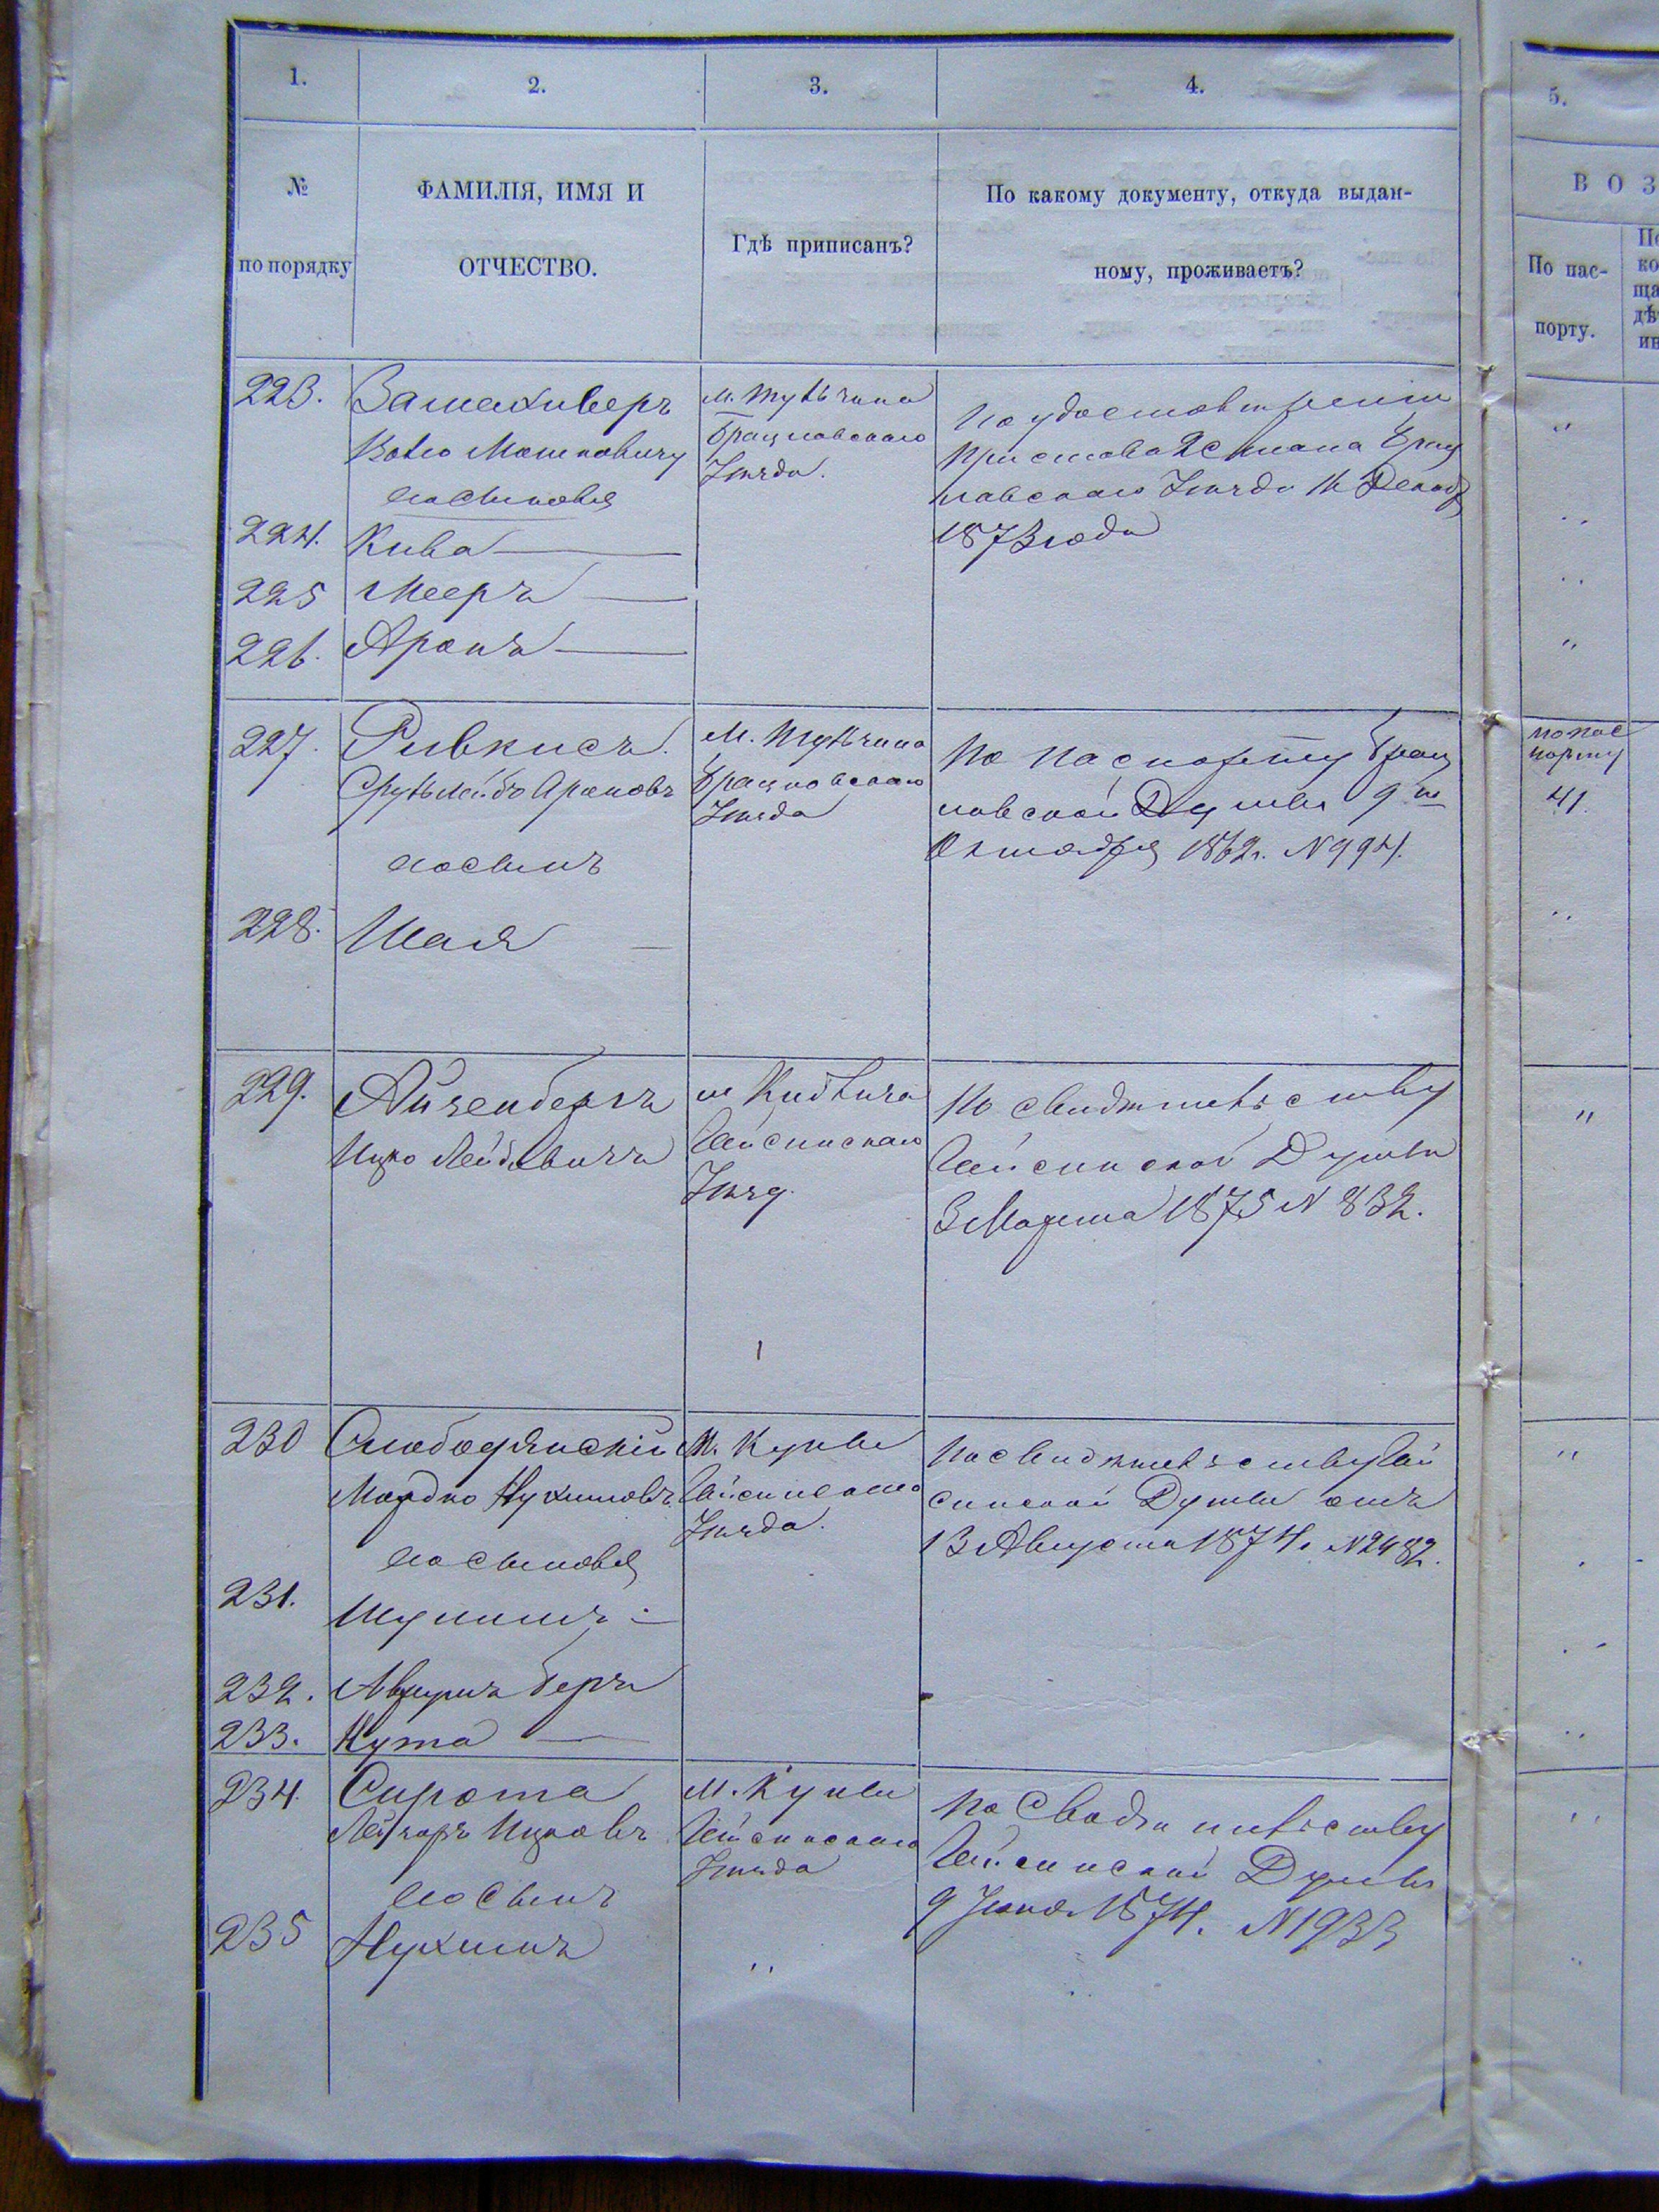 1.
2.
3.
4.
5.
№
по порядку
ФАМИЛІЯ, ИМЯ И
ОТЧЕСТВО.
Гдѣ приписанъ?
По какому документу, откуда выдан-
ному, проживаетъ?
В О З
По пас-
порту.
223.
Мошковичу
сосыновья
м. Тульчина
Брацлавскаго
Уѣзда.
По удостовѣренію
Пристава 2 Стана Брац
лавскаго Уѣзда 16 Декаб
1873 года
224. Кива
225 Мееръ
226. Аронъ
227. Ривкисъ.
Сруль Лейбъ Ароновъ
сосынъ
М. Тульчина
Брацлавскаго
Уѣзда
По паспорту Брац
лавской Думы 9го
Октября 1862г. №994.
по пас
порту
41.
228. Шая
229. Айзенбергъ
Ицко Лейбовичъ
Гайсинскаго
Уѣзд.
По свидѣтельству
Гайсинской Думы
3 Марта 1875 № 832.
230 Слободянскій
Мордко Нухимовъ
сосыновья
М. Куны
Гайсинскаго
Уѣзда.
По свидѣтельству Гай
синской Думы отъ
13 Августа 1874г. №2482.
231.
232. Аврумъ Беръ
233. Нута
234. Сирота
Лейзоръ Ицковъ
сосынъ
М. Куны
Гайсинскаго
Уѣзда
По Свидѣтельству
Гайсинской Думы
9 Іюня 1874. №1933
235 Нухимъ